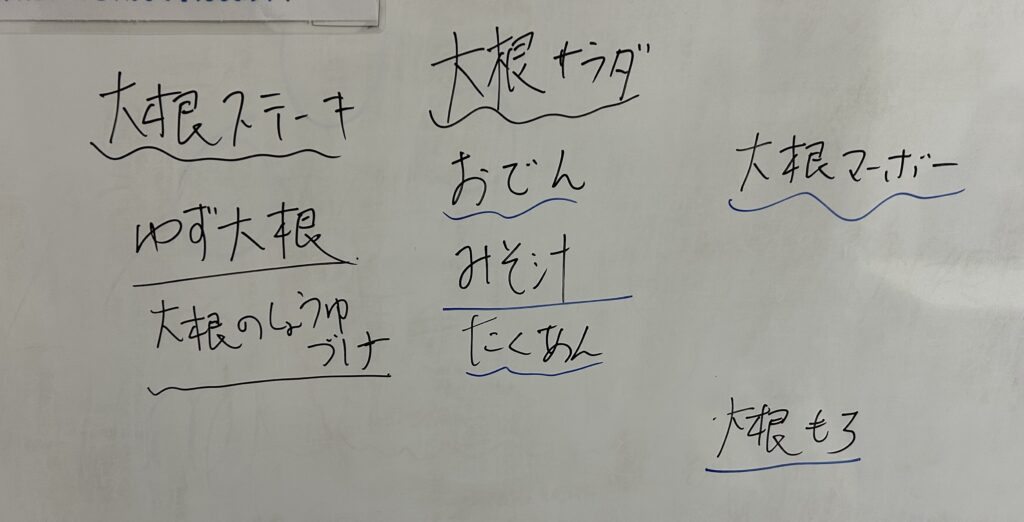 大根ステーキ
ゆず大根
大根のしょうゆ
づけ
大根サラダ
おでん
みそ汁
たくあん
大根マーボー
大根もろ